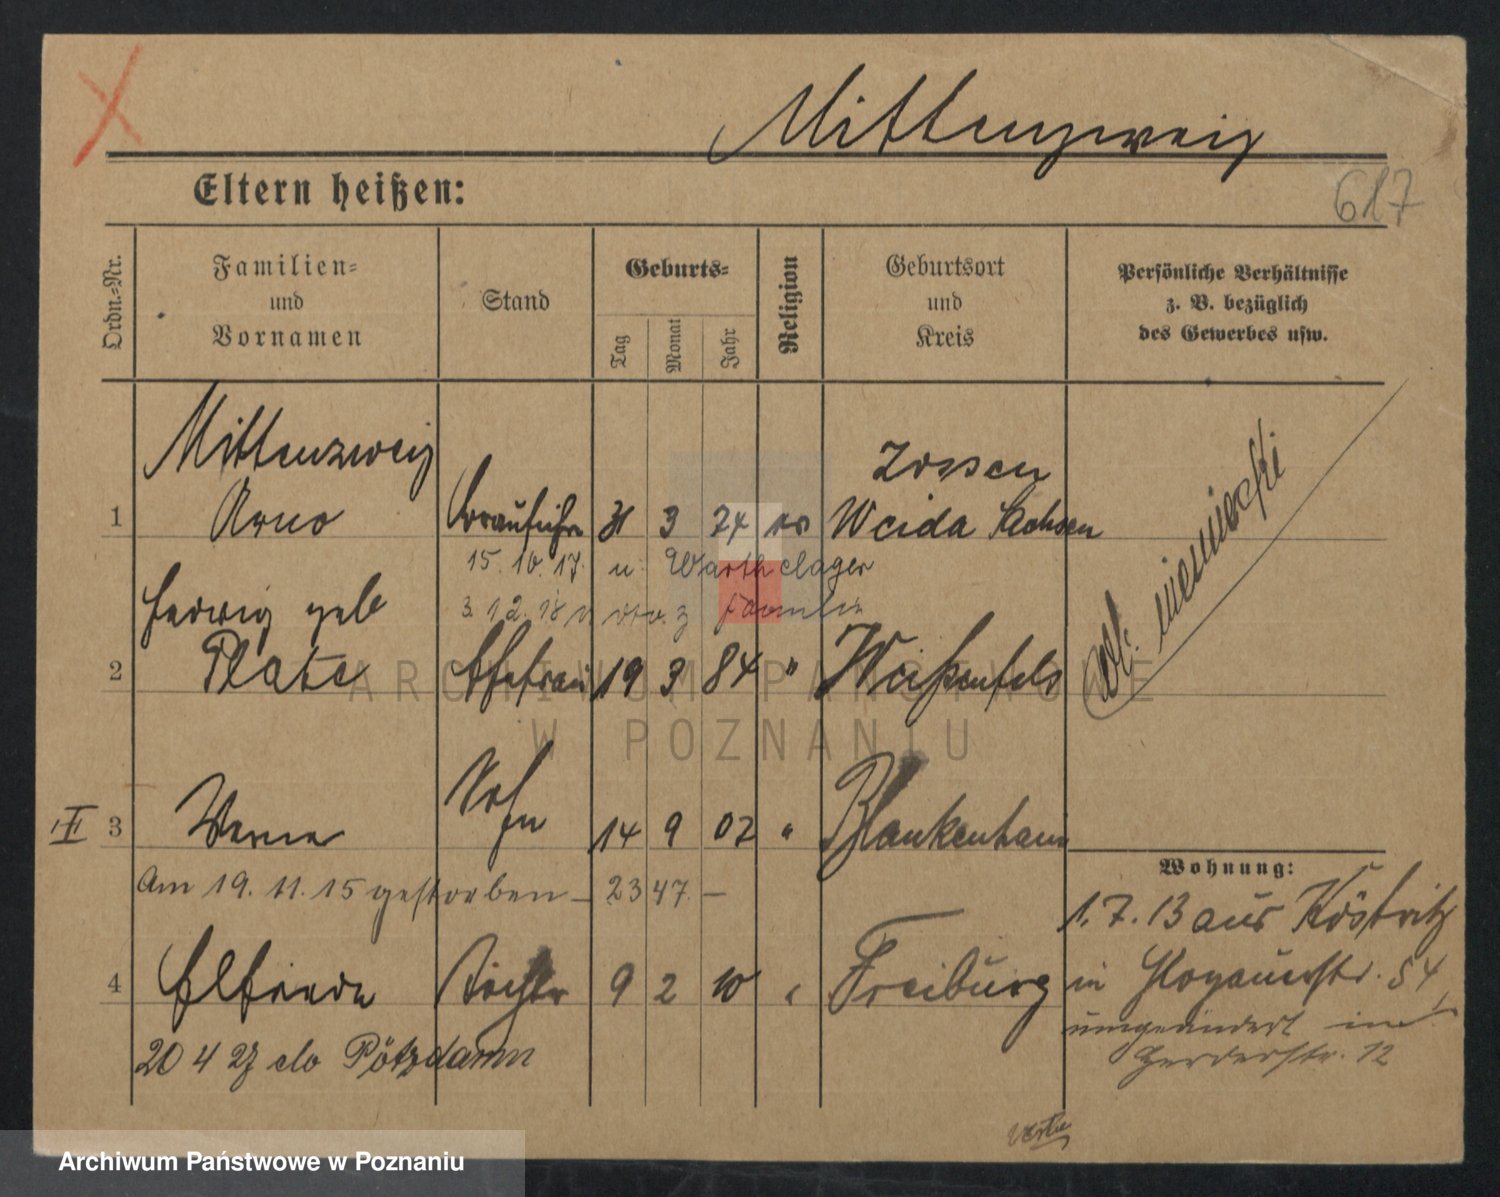 Mittenzweig
Eltern heißen:
617
Ordn.-Nr.
Familien-
und
Vornamen
Stand
Geburts-
Tag
Monat
Jahr
Religion
Geburtsort
und
Kreis
Persönliche Verhältnisse
z. B. bezüglich
des Gewerbes usw.
Mittenzweig
Zossen
1 Arno 31 3 74 Weida Sachsen
15. 10. 17. n. Warthelager
3. 12. 18 v. z Familie
Hedwig geb
2 Plate Ehefrau 19 3 84 " Weißenfels
obl. niemiecki
III 3 Werner Sohn 14 9 02 " Blankenhain
Am 19. 11. 15 gestorben – 2347. –
Wohnung:
1. 7. 13 aus Köstritz
4 Elfriede Tochter 9 2 10 " Freiburg
in Glogauerstr. 54
umgeändert in
Herderstr. 12
20 4 27 do
ARCHIWUM PAŃSTWOWE
W POZNANIU
Archiwum Państwowe w Poznaniu